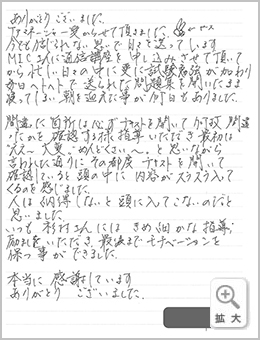 ありがとうございました。
ケアマネージャー受からせて頂きました。
今でも信じれない思いで日々を送っています
MICさんに通信講座を申し込みさせて頂いて
から忙しい日々の中に更に試験勉強が加わり
毎日ヘトヘトで送られた問題集を開いたまま
凌ってしまい朝を迎えた事が何日もありました。
間違った箇所は必ずテキストを開いて何故間違
いかを確認する様指導いただき最初は
"え～大変、めんどくさい～"と思いながら
言われた通りにその都度テキストを開いて
確認していると頭の中に内容がスラスラ入って
くるのを感じました。
人は納得しないと頭に入ってこないのだと
思いました。
いつも木村さんにはきめ細かな指導・
励ましをいただき、最後までモチベーションを
保つ事ができました。
本当に感謝しています
ありがとうございました。
拡大